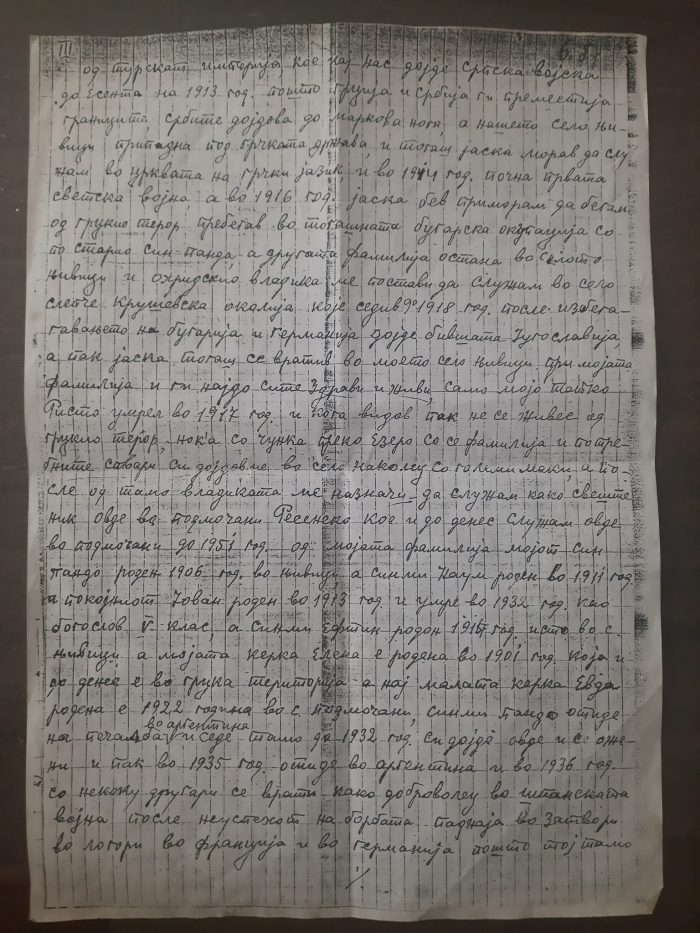 III
од турскат империја кое кај нас дојде српска војска
до Есента на 1913 год. пошто грција и србија ги преместија
границите, србите дојдова до маркова нога, а нашето село њи-
вици припадна под грчката држава, и тогаш јаска морав да слу
жам во црквата на грчки јазик, и во 1914 год. почна првата
светска војна, а во 1916 год. јаска бев приморам да бегам
од грцкио терор пребегав во тогашната бугарска окупација со
по старио син панда, а другата фамилија остана во селото
њивици и охридскио владика ме постави да служам во село
слепче крушевска околија, које седив до 1918 год. после избега-
гавањето на бугарија и германија дојде бившата Југославија,
а пак јаска тогаш се вратив во моето село њивици при мојата
фамилија и ги најдо сите здрави и живи, само мојо татко
Ристо умрел во 1917 год. и кога видов пак не се живес од
грцкио терор, нок'а со чунка преко Езеро со се фамилија и потре-
бните ствари си дојдовме во село наколец со големи маки, и по-
сле од тамо владиката ме назначи да служам како свеште
ник овде во подмочани Ресенско кое и до денес служам овде
во подмочани до 1951 год. од мојата фамилија мојот син
пандо роден 1906 год. во њивици а син ми Наум роден во 1911 год
и покојниот Јован роден во 1913 год. и умре во 1932 год. као
богослов V клас, а син ми Ефтин родон 1915 год. исто во с.
њивици а мојата керка Елена е родена во 1901 год. која и
до денес е во грцка територија а нај малата керка Евда
родена е 1922 година во с. подмочани, син ми пандо отиде
во аргентина
на печалба и седе тамо до 1932 год. си дојде овде и се оже-
ни и пак во 1935 год. отиде во аргентина и во 1936 год.
со некожу другари се врати како доброволец во шпанската
војна после неуспехот на борбата паднаја во затвори
во логори во француја и во германија пошто тој тамо
·/·